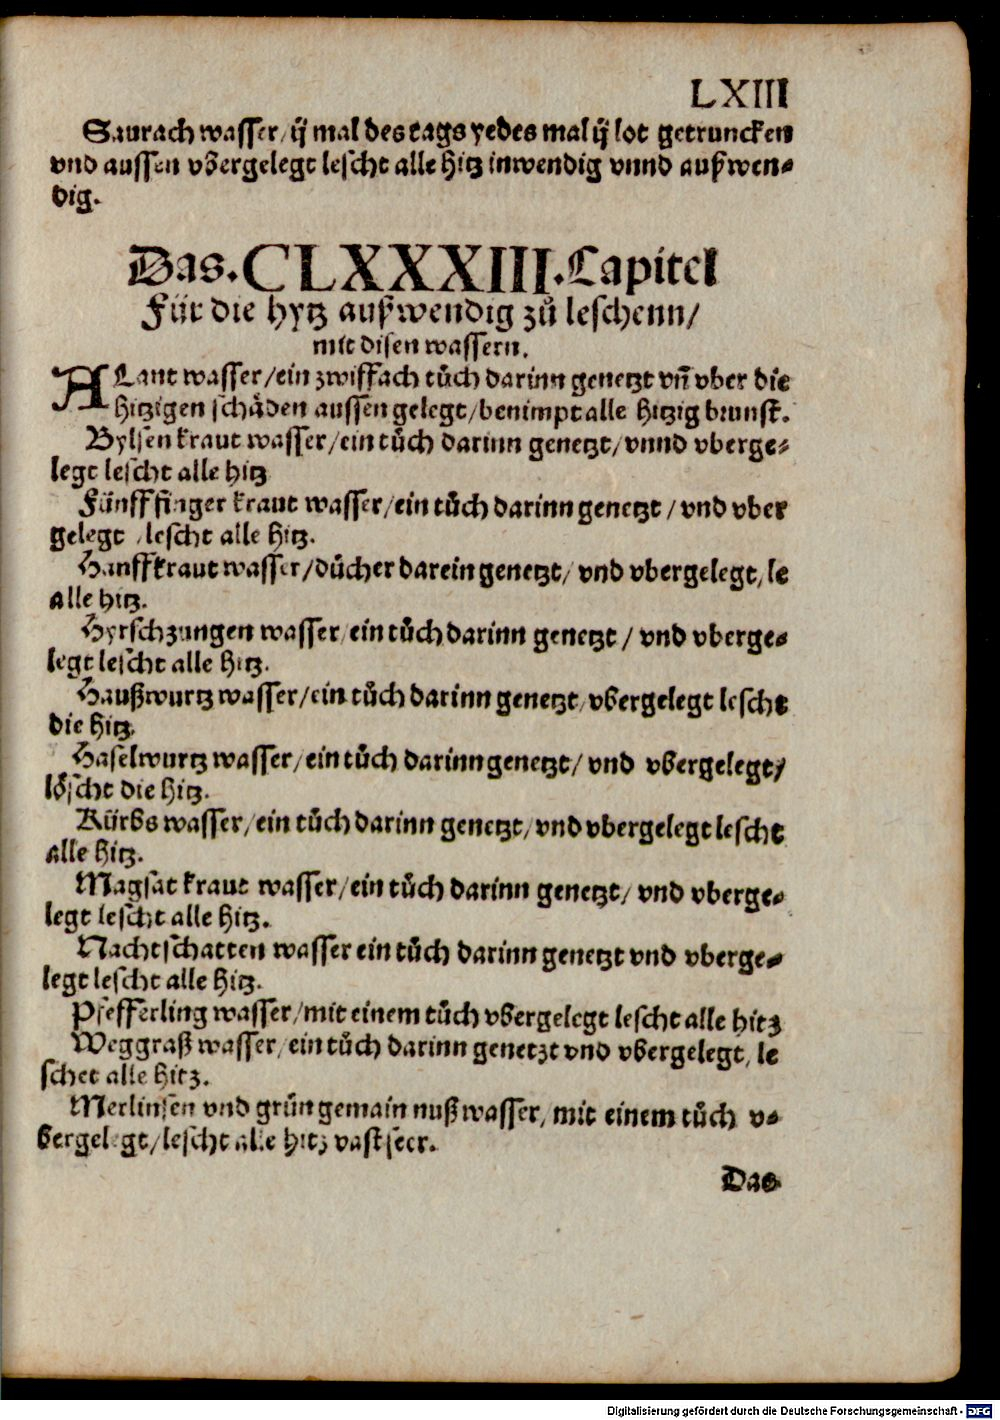 LXIII
Saurach wasser/ ij mal des tags yedes mal ij lot getruncken
vnd aussen vbergelegt lescht alle hitz inwendig vnnd außwen-
dig.
Das. CLXXXIII. Capitel
Für die hytz außwendig zů leschenn/
mit disen wassern.
ALant wasser/ein zwiffach tůch darinn genetzt vñ vber die
hitzigen schäden aussen gelegt/benimpt alle hitzig brunst.
Bylsen kraut wasser/ein tůch darinn genetzt/vnnd vberge-
legt lescht alle hitz
Fünfffinger kraut wasser/ein tůch darinn genetzt/vnd vber
gelegt /lescht alle hitz.
Hanffkraut wasser/důcher darein genetzt/ vnd vbergelegt, le
alle hitz.
Hyrschzungen wasser/ein tůch darinn genetzt/ vnd vberge-
legt lescht alle hitz.
Haußwurtz wasser/ein tůch darinn genetzt/vbergelegt lescht
die hitz.
Haselwurtz wasser/ein tůch darinn genetzt/ vnd vbergelegt/
löscht die hitz.
Kürbs wasser/ein tůch darinn genetzt/vnd vbergelegt lescht
alle hitz.
Magsat kraut wasser/ein tůch darinn genetzt/ vnd vberge-
legt lescht alle hitz.
Nachtschatten wasser ein tůch darinn genetzt vnd vberge-
legt lescht alle hitz.
Pfefferling wasser/mit einem tůch vbergelegt lescht alle hitz
Weggraß wasser/ein tůch darinn genetzt vnd vbergelegt, le
schet alle hitz.
Merlinsen vnd grün gemain nuß wasser/mit einem tůch v-
bergelegt/lescht alle hitz vast seer.
Das
Digitalisierung gefördert durch die Deutsche Forschungsgemeinschaft - DFG